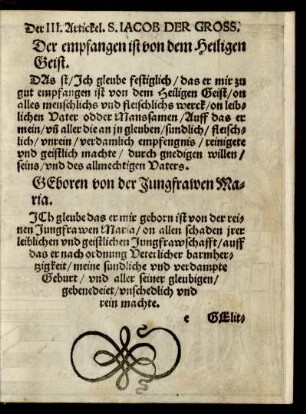 Der III. Artickel. S. IACOB DER GROSS.
Der empfangen ist von dem Heiligen
Geist.
DAs ist/Ich gleube festiglich/das er mir zu
gut empfangen ist von dem Heiligen Geist/on
alles menschlichs vnd fleischlichs werck/on leib-
lichen Vater odder Manssamen/Auff das er
mein/vñ aller die an jn gleuben/sundlich/fleisch-
lich/vnrein/verdamlich empfengnis/reinigete
vnd geistlich machte/durch gnedigen willen/
seins/vnd des allmechtigen Vaters.
GEboren von der Jungfrawen Ma-
ria.
ICh gleube das er mir geborn ist von der rei-
nen Jungfrawen Maria/on allen schaden jrer
leiblichen vnd geistlichen Jungfrawschafft/auff
das er nach ordnung Veterlicher barmher-
tzigkeit/meine sundliche vnd verdampte
Geburt/vnd aller seiner gleubigen/
gebenedeiet/vnschedlich vnd
rein machte.
e GElit-